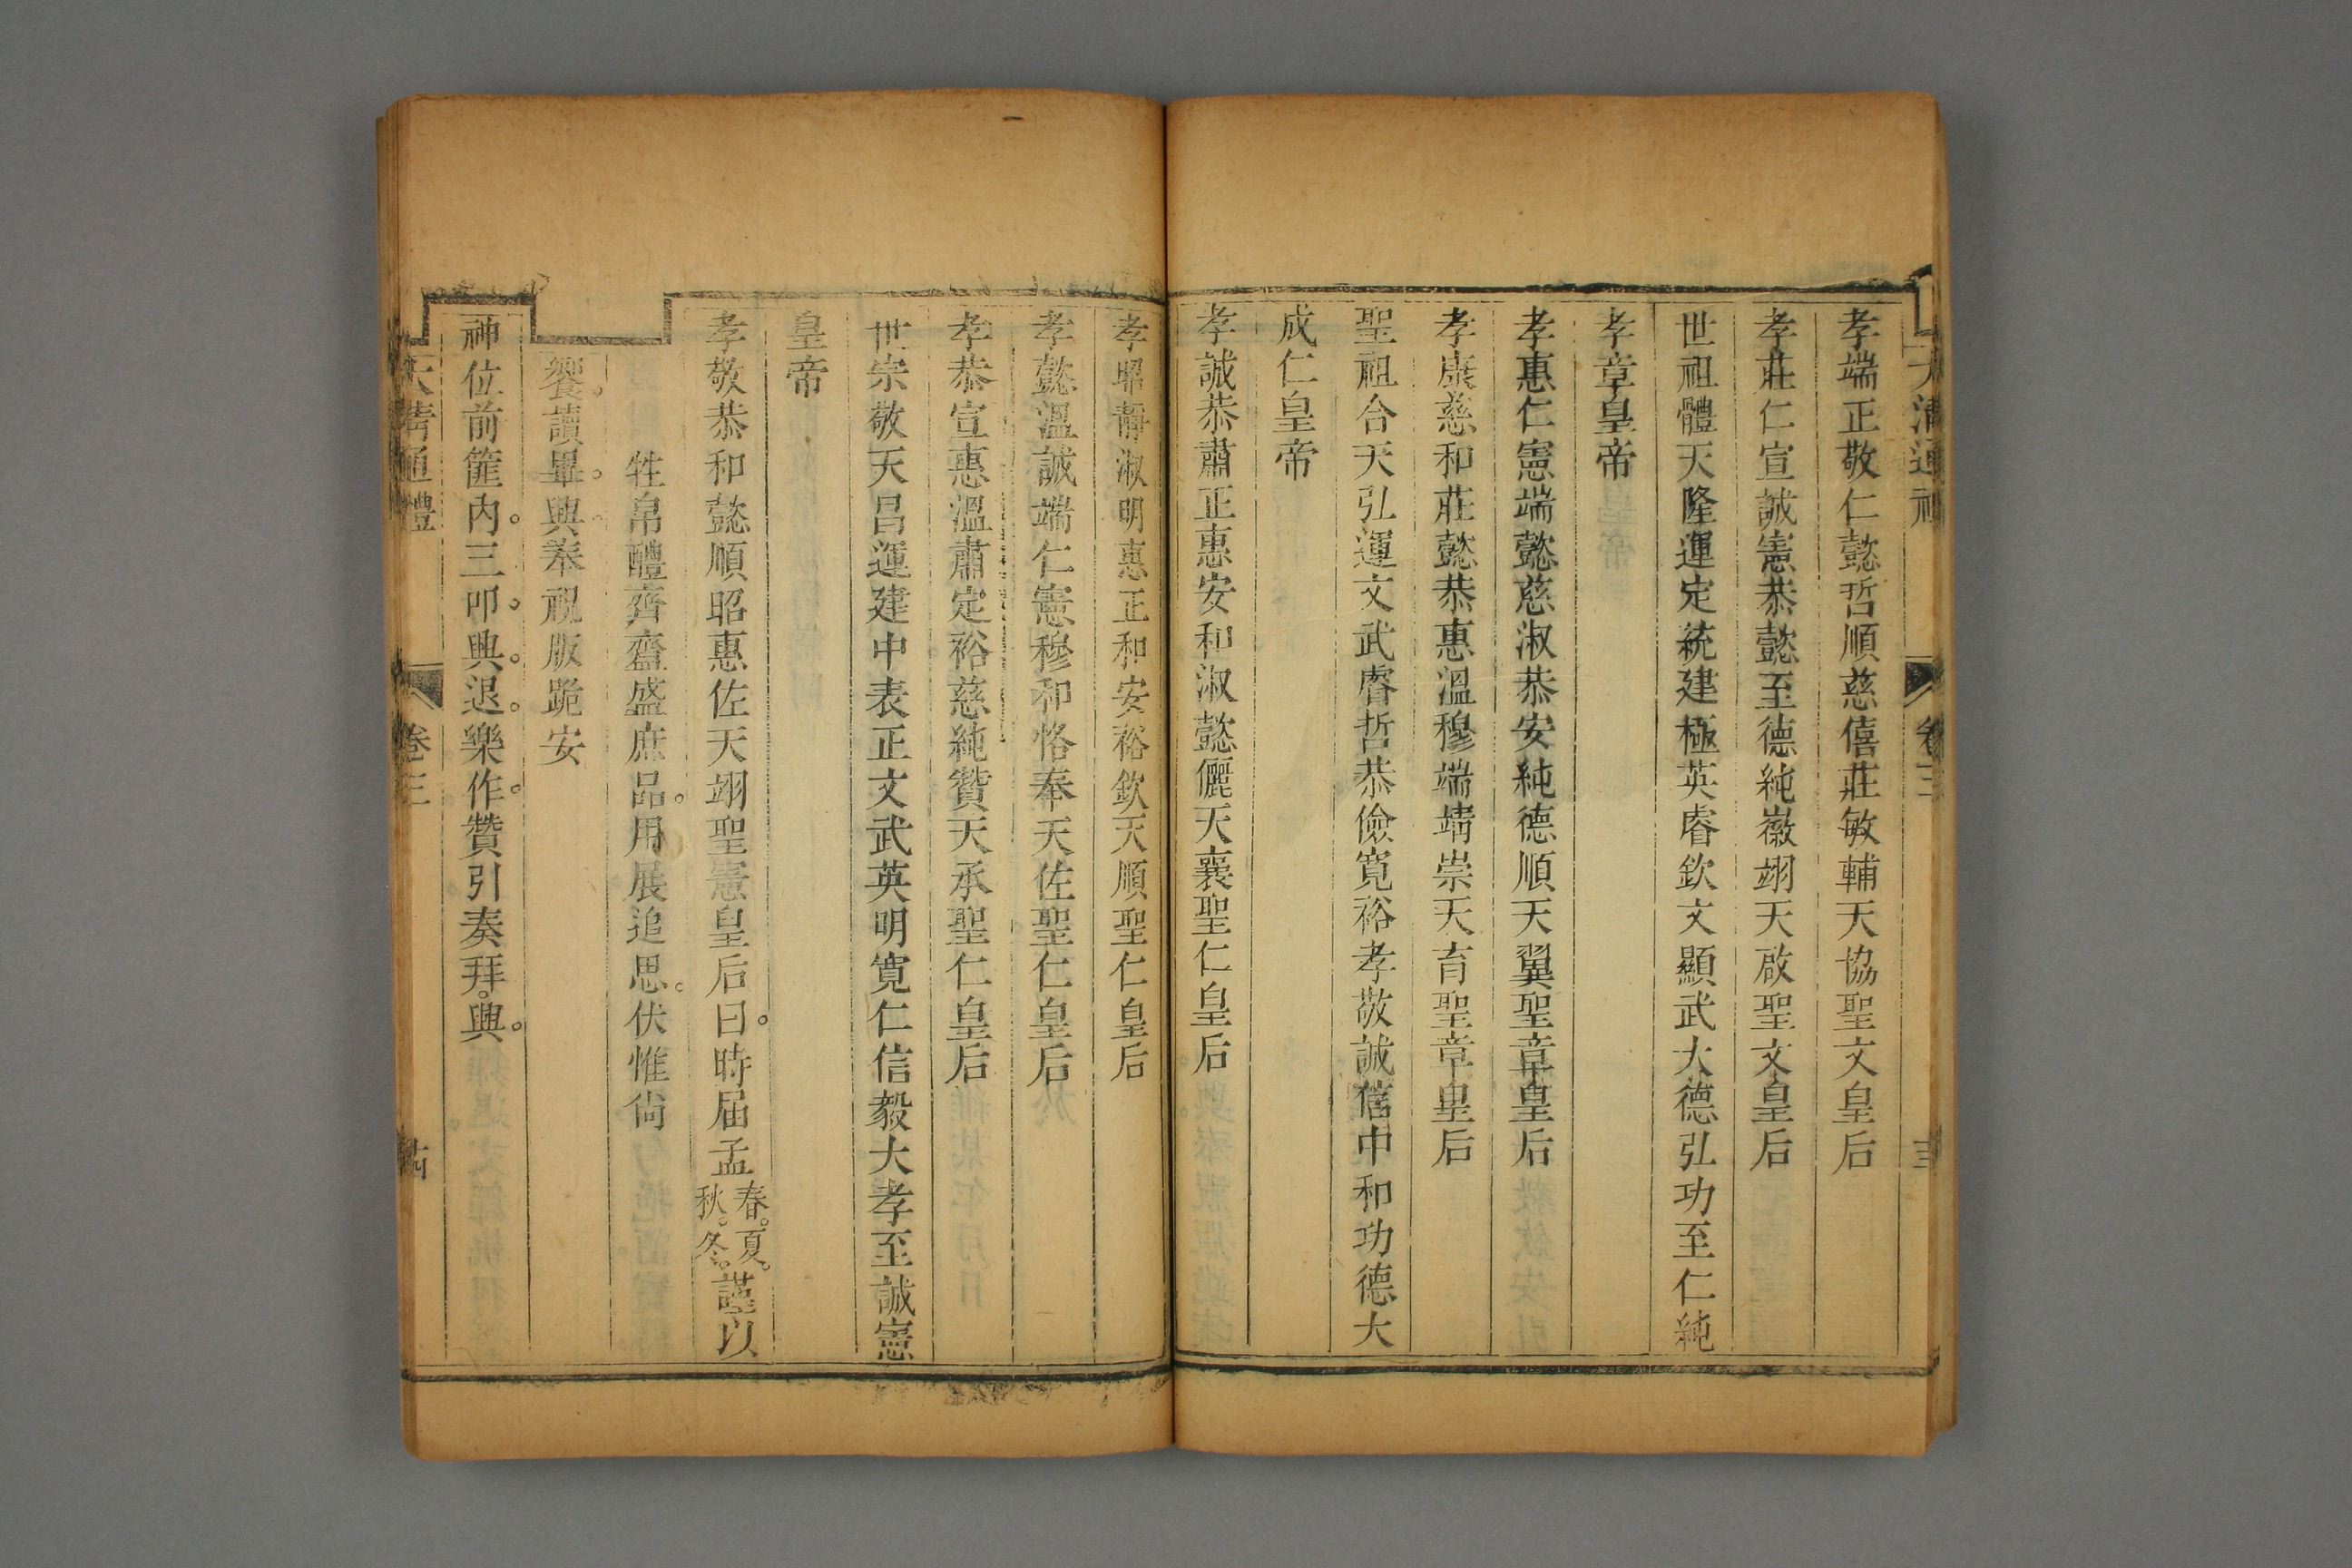 大清通禮 卷三
孝端正敬仁懿哲順慈僖莊敏輔天協聖文皇后
孝莊仁宣誠憲恭懿至德純徽翊天啟聖文皇后
世祖體天隆運定統建極英睿欽文顯武大德弘功至仁純
孝章皇帝
孝惠仁憲端懿慈淑恭安純德順天翼聖章皇后
孝康慈和莊懿恭惠溫穆端靖崇天育聖章皇后
聖祖合天弘運文武睿哲恭儉寬裕孝敬誠信中和功德大
成仁皇帝
孝誠恭肅正惠安和淑懿儷天襄聖仁皇后
孝昭靜淑明惠正和安裕欽天順聖仁皇后
孝懿溫誠端仁憲穆和恪奉天佐聖仁皇后
孝恭宣惠溫肅定裕慈純贊天承聖仁皇后
世宗敬天昌運建中表正文武英明寬仁信毅大孝至誠憲
皇帝
孝敬恭和懿順昭惠佐天翊聖憲皇后曰。時届孟春。夏。秋。冬。謹以
牲帛醴齊齍盛庶品。用展追思。伏惟尙
饗。讀畢。興。奉祝版跪安
神位前篚內。三叩。興。退。樂作。贊引奏拜。興。
大清通禮 卷三 十四